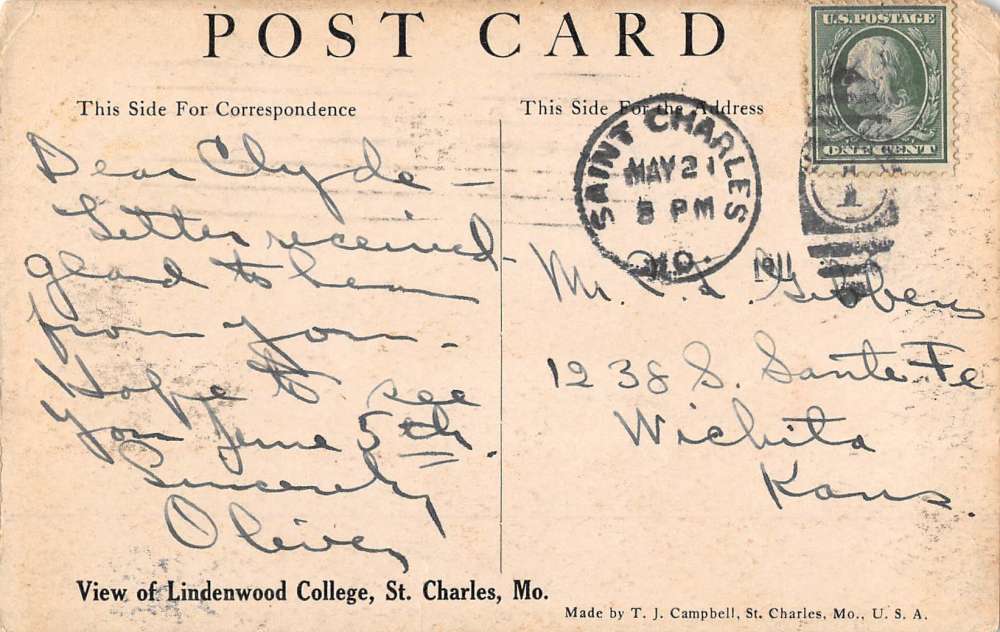 POST CARD
This Side For Correspondence
This Side For the Address
U.S. POSTAGE
ONE CENT
SAINT CHARLES
MAY 21
8 PM
MO.
1911
Dear Clyde –
Letter received –
glead to hear
from you.
Hope to see
you June 5th.
Sincerely
Olive
Mr. C. L.
1238 S. Santa Fe
Wichita
Kans.
View of Lindenwood College, St. Charles, Mo.
Made by T. J. Campbell, St. Charles, Mo., U. S. A.